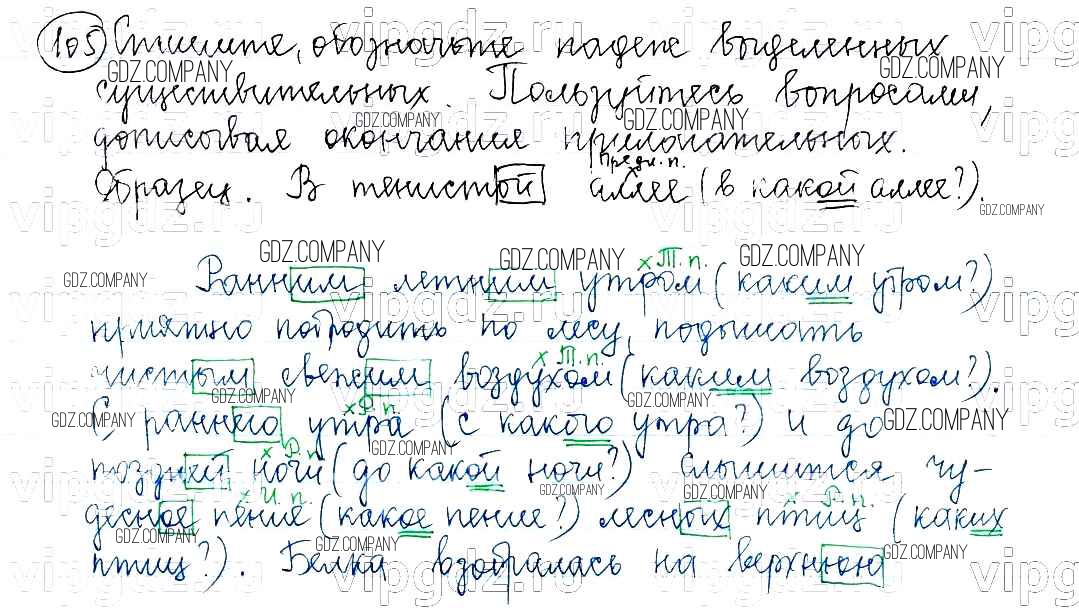 105 Спишите, обозначьте падеж выделенных
существительных. Пользуйтесь вопросами,
дописывая окончания прилагательных.
Предл. п.
Образец. В тенистой аллее (в какой аллее?).
х Т. п.
Ранним летним утром (каким утром?)
приятно побродить по лесу, подышать
х Т. п.
чистым свежим воздухом (каким воздухом?).
х Р. п.
С раннего утра (с какого утра?) и до
х Р. п.
поздней ночи (до какой ночи?) слышится чу-
х И. п. х Р. п.
десное пение (какое пение?) лесных птиц (каких
птиц?). Белка взобралась на верхнюю
GDZ.COMPANY
vipgdz.ru